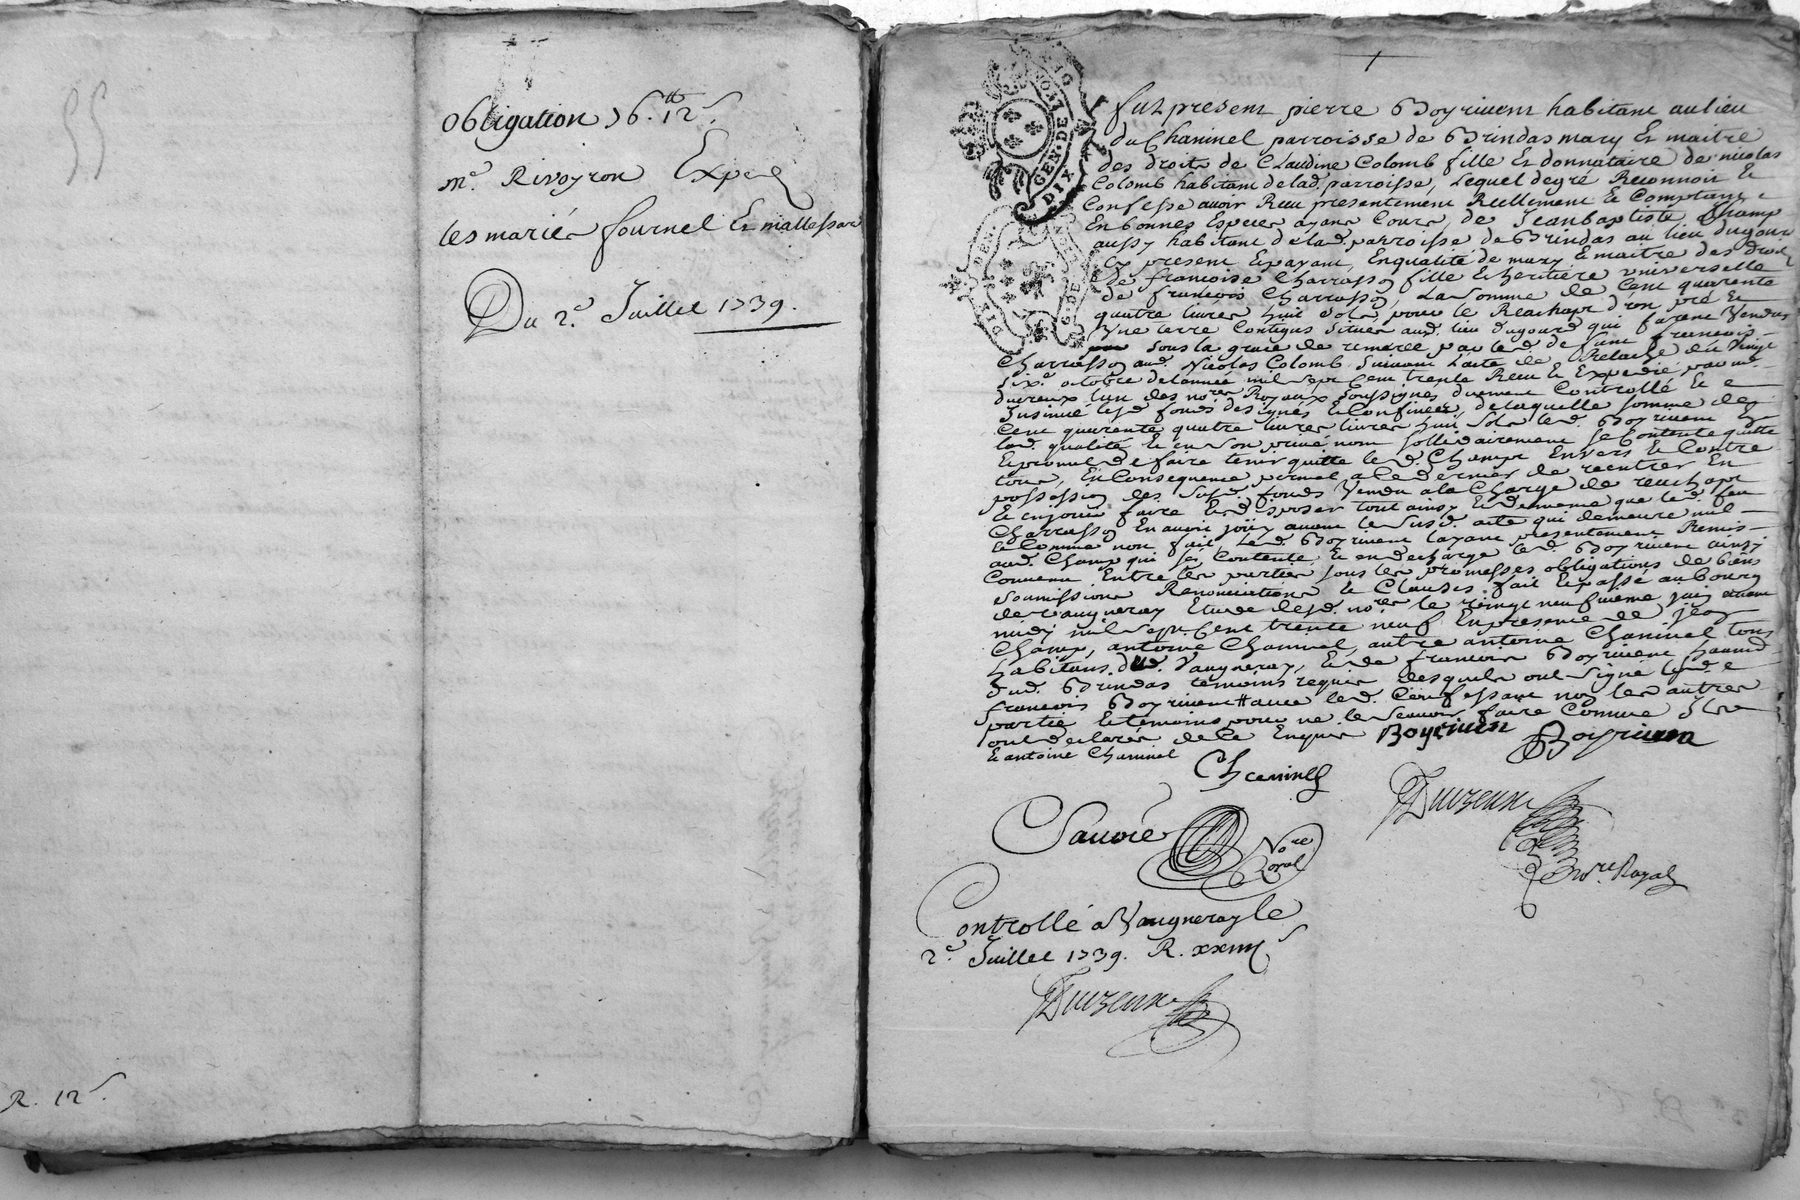 55
Obligation 36.tt 12.s
Me. Rivoyron Exped
les mariés fournel Et mallessar
Du 2e. Juillet 1739.
R. 12s.
GEN. DE LION
DIX DEN.
fut present pierre Boyrivent habitant au lieu
du Chaninel parroisse de Brindas mary Et maitre
des droits de Claudine Colomb fille Et donnataire de nicolas
Colomb habitant de lad. parroisse, Lequel de gré Reconnoit Et
Confesse avoir Reçu presentement Reellement Et Comptant
En bonnes Especes ayant Cours, de Jean baptiste Champ
aussy habitant de lad. parroisse de Brindas au lieu dugourd
Cy present Et payant, En qualité de mary Et maitre des droits
de francoise Charrasson fille Et heritière universelle
de francois Charrasson, La somme de Cent quarente
quatre livres huit sols pour le Reachapt d'un pré Et
Une terre Contigus situés aud. lieu dugourd qui furent Vendus
sous la grace de remeré par led. defunt francois
Charrasson aud. Nicolas Colomb suivant L'acte de Relache du Vingt
six.e octobre de l'année mil sept Cent trente Reçu Et Expedié par me.
duvreux l'un des no.res Royaux soussignés duement Controllé Et
Insinué lesd. fonds designés Et Confinés, de laquelle somme de
Cent quarente quatre livres livres huit sols led. Boyrivent En
lad. qualité Et en son privé nom sollidairement se Contente quitte
Et promet de faire tenir quitte led. Champ Envers Et Contre
tous, En Consequence permet a Ce dernier de reentrer En
possession des susd. fonds Vendu a la Charge de reachapt
Et en jouir faire Et disposer tout ainsy Et de meme que led. feu
Charrasson En avoit joüy avant le susd. acte qui demeure nul
Et Comme non fait led. Boyrivent layant presentement Remis
aud. Champ qui s'en Contente Et en decharge led. Boyrivent ainsy
Convenu Entre les parties sous les promesses obligations de biens
soumissions Renonciations Et Clauses. fait Et passé au bourg
de Vaugneray Etude desd. no.res le vingt neufvieme juin avant
midy mil sept Cent trente neuf En presence de Jean
Champ, antoine Chaninel, autre antoine Chaninel tous
habitans dud. Vaugneray, Et de francois Boyrivent
dud. Brindas temoins requis lesquels ont signé led.
francois Boyrivent # avec led. Confessant non les autres
parties Et temoins pour ne le scavoir faire Comme Ils
ont declarés de Ce Enquis Boyrivent Boyrivent
# Et antoine Chaninel
Chaninel
Duvreux
Sauvré No.re Royal
no.re Royal
Controllé a Vaugneray le
2e. Juillet 1739. R. xxiiii s
Duvreux